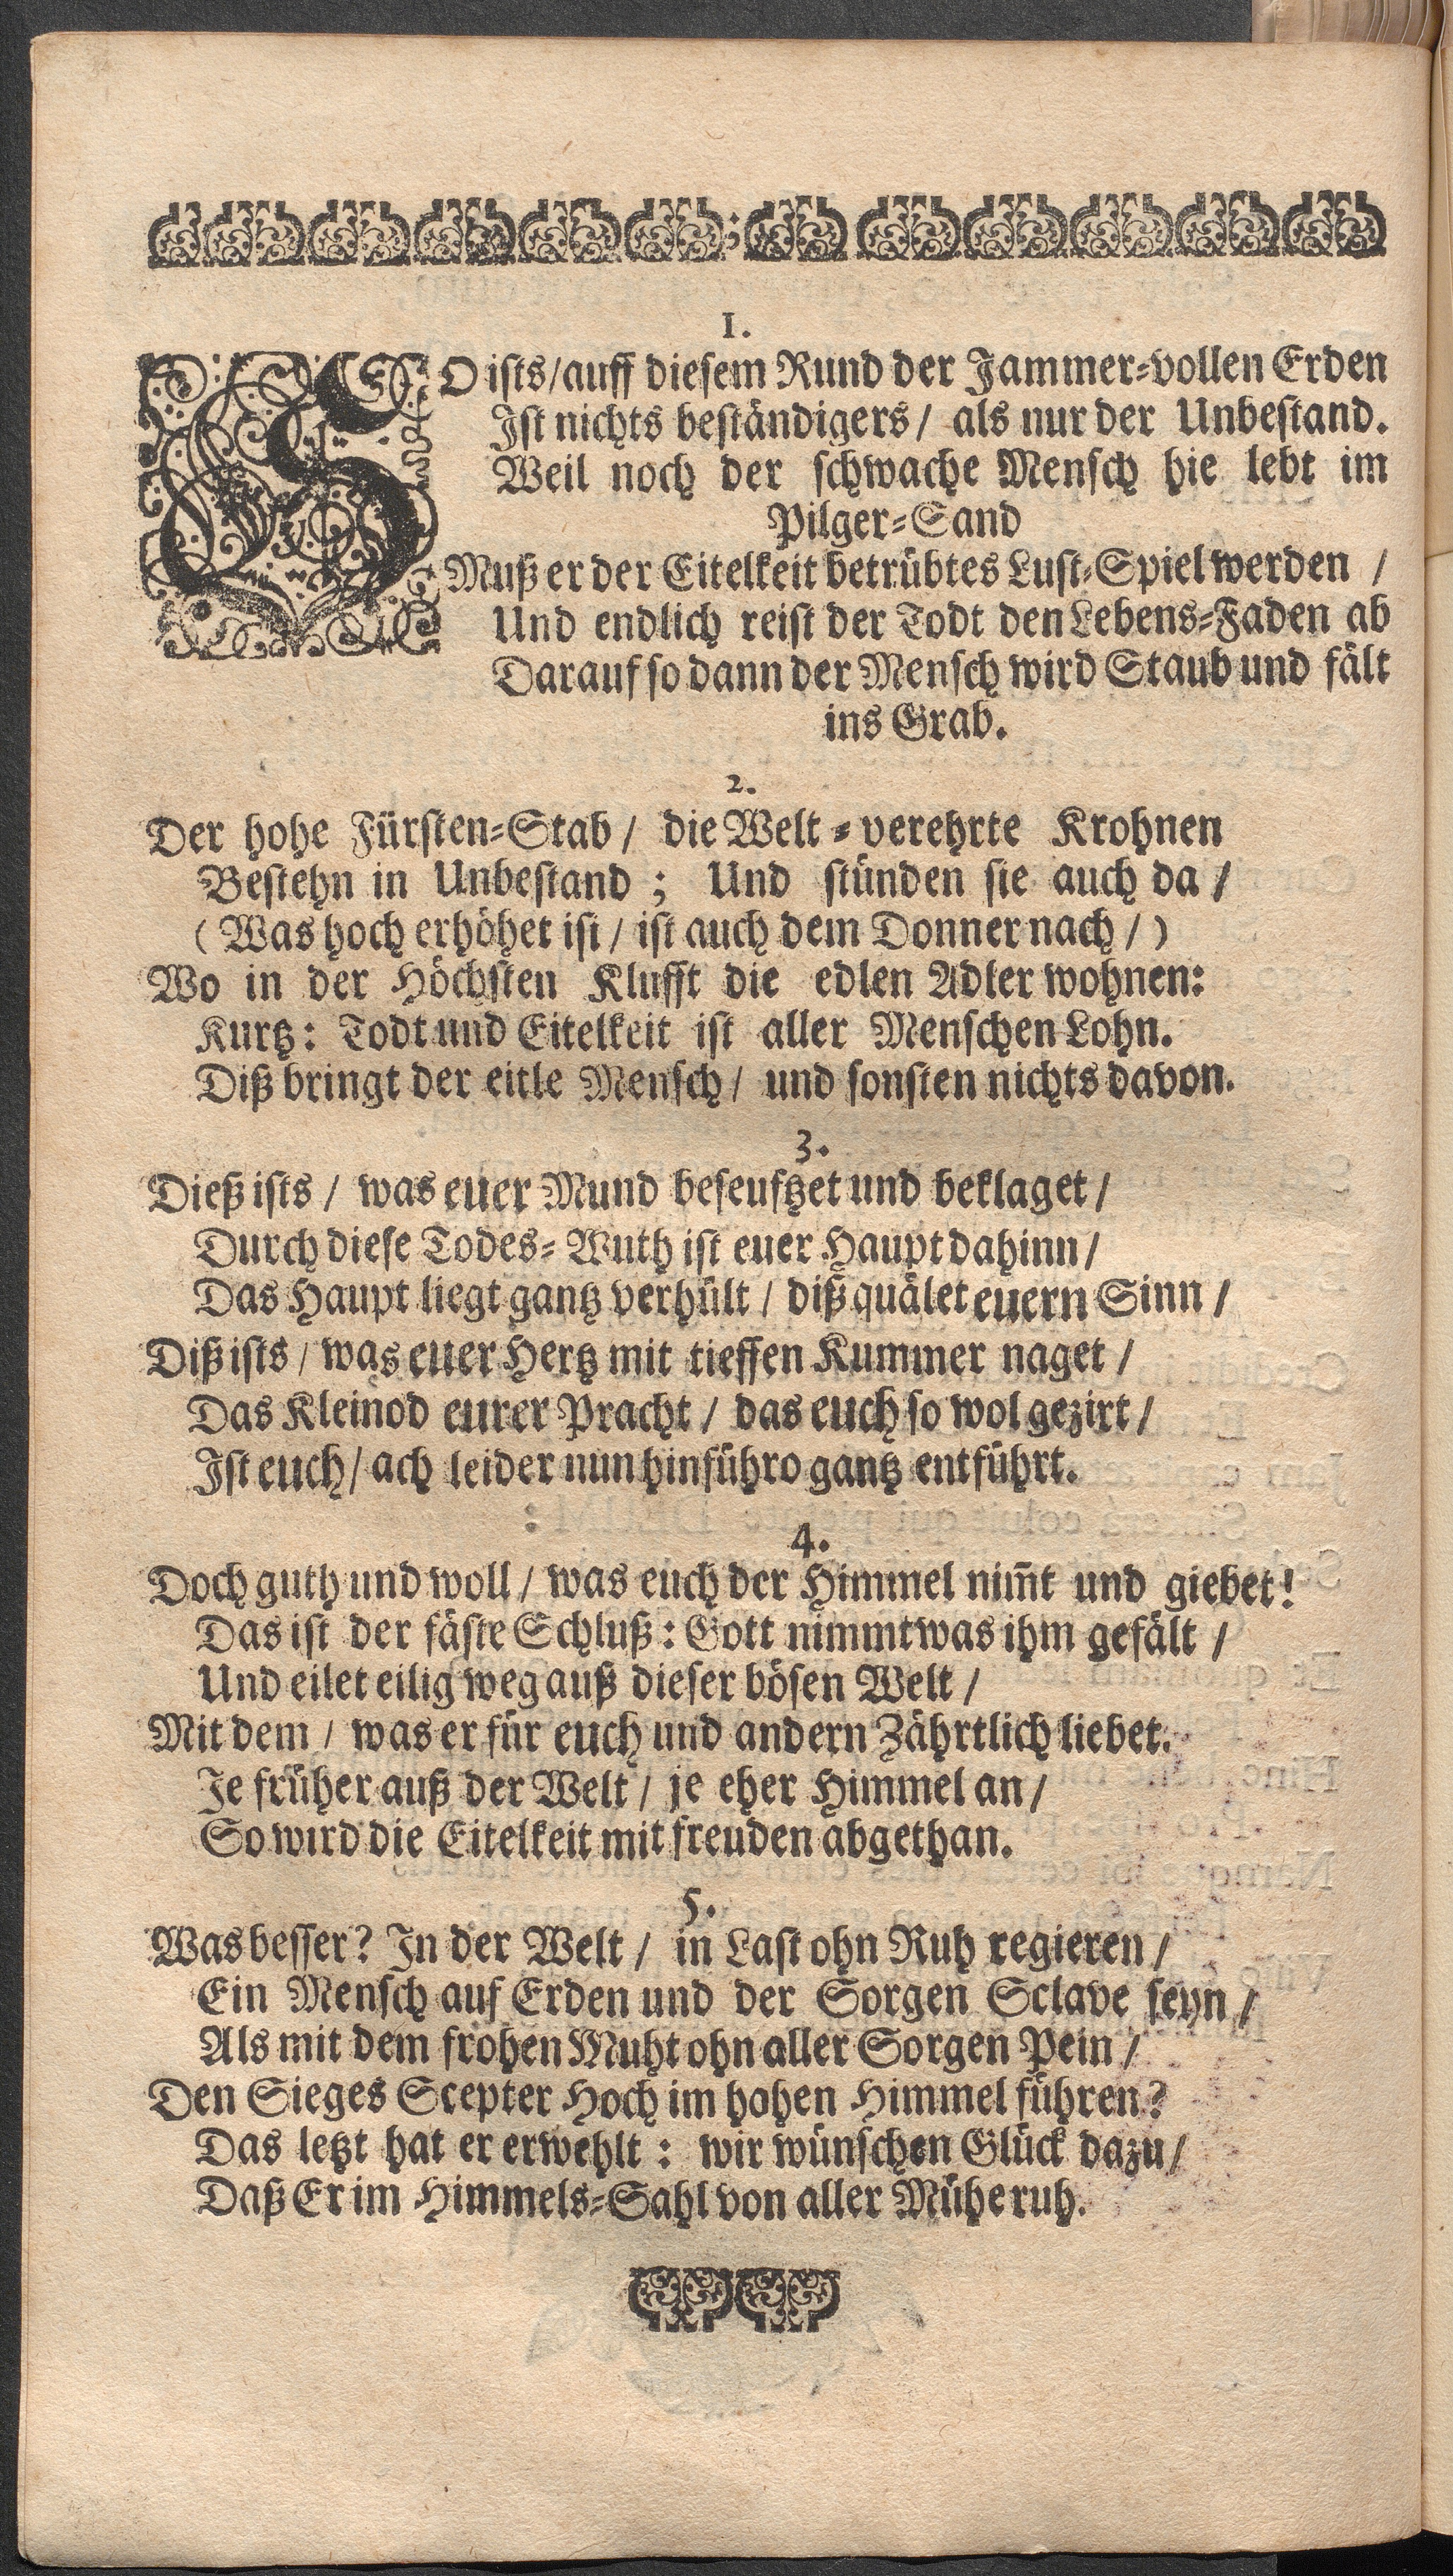 1.
SO ists/auff diesem Rund der Jammer-vollen Erden
Ist nichts beständigers/ als nur der Unbestand.
Weil noch der schwache Mensch hie lebt im
Pilger-Sand
Muß er der Eitelkeit betrübtes Lust-Spiel werden /
Und endlich reist der Todt den Lebens-Faden ab
Darauf so dann der Mensch wird Staub und fält
ins Grab.
2.
Der hohe Fürsten-Stab/ die Welt-verehrte Krohnen
Bestehn in Unbestand; Und stünden sie auch da/
(Was hoch erhöhet ist/ ist auch dem Donner nach/)
Wo in der Höchsten Klufft die edlen Adler wohnen:
Kurtz: Todt und Eitelkeit ist aller Menschen Lohn.
Diß bringt der eitle Mensch/ und sonsten nichts davon.
3.
Dieß ists/ was euer Mund beseuftzet und beklaget/
Durch diese Todes-Wuth ist euer Haupt dahinn/
Das Haupt liegt gantz verhült/ diß quälet euern Sinn/
Diß ists/ was euer Hertz mit tieffen Kummer naget/
Das Kleinod eurer Pracht/ das euch so wol gezirt/
Ist euch/ ach leider nun hinführo gantz entführt.
4.
Doch guth und woll/ was euch der Himmel nim̃t und giebet!
Das ist der fäste Schluß: Gott nimmt was ihm gefält/
Und eilet eilig weg auß dieser bösen Welt/
Mit dem/ was er für euch und andern Zährtlich liebet.
Je früher auß der Welt/ je eher Himmel an/
So wird die Eitelkeit mit freuden abgethan.
5.
Was besser? In der Welt/ in Last ohn Ruh regieren/
Ein Mensch auf Erden und der Sorgen Sclave seyn/
Als mit dem frohen Muht ohn aller Sorgen Pein/
Den Sieges Scepter Hoch im hohen Himmel führen?
Das letzt hat er erwehlt: wir wünschen Glück dazu/
Daß Er im Himmels-Sahl von aller Mühe ruh.